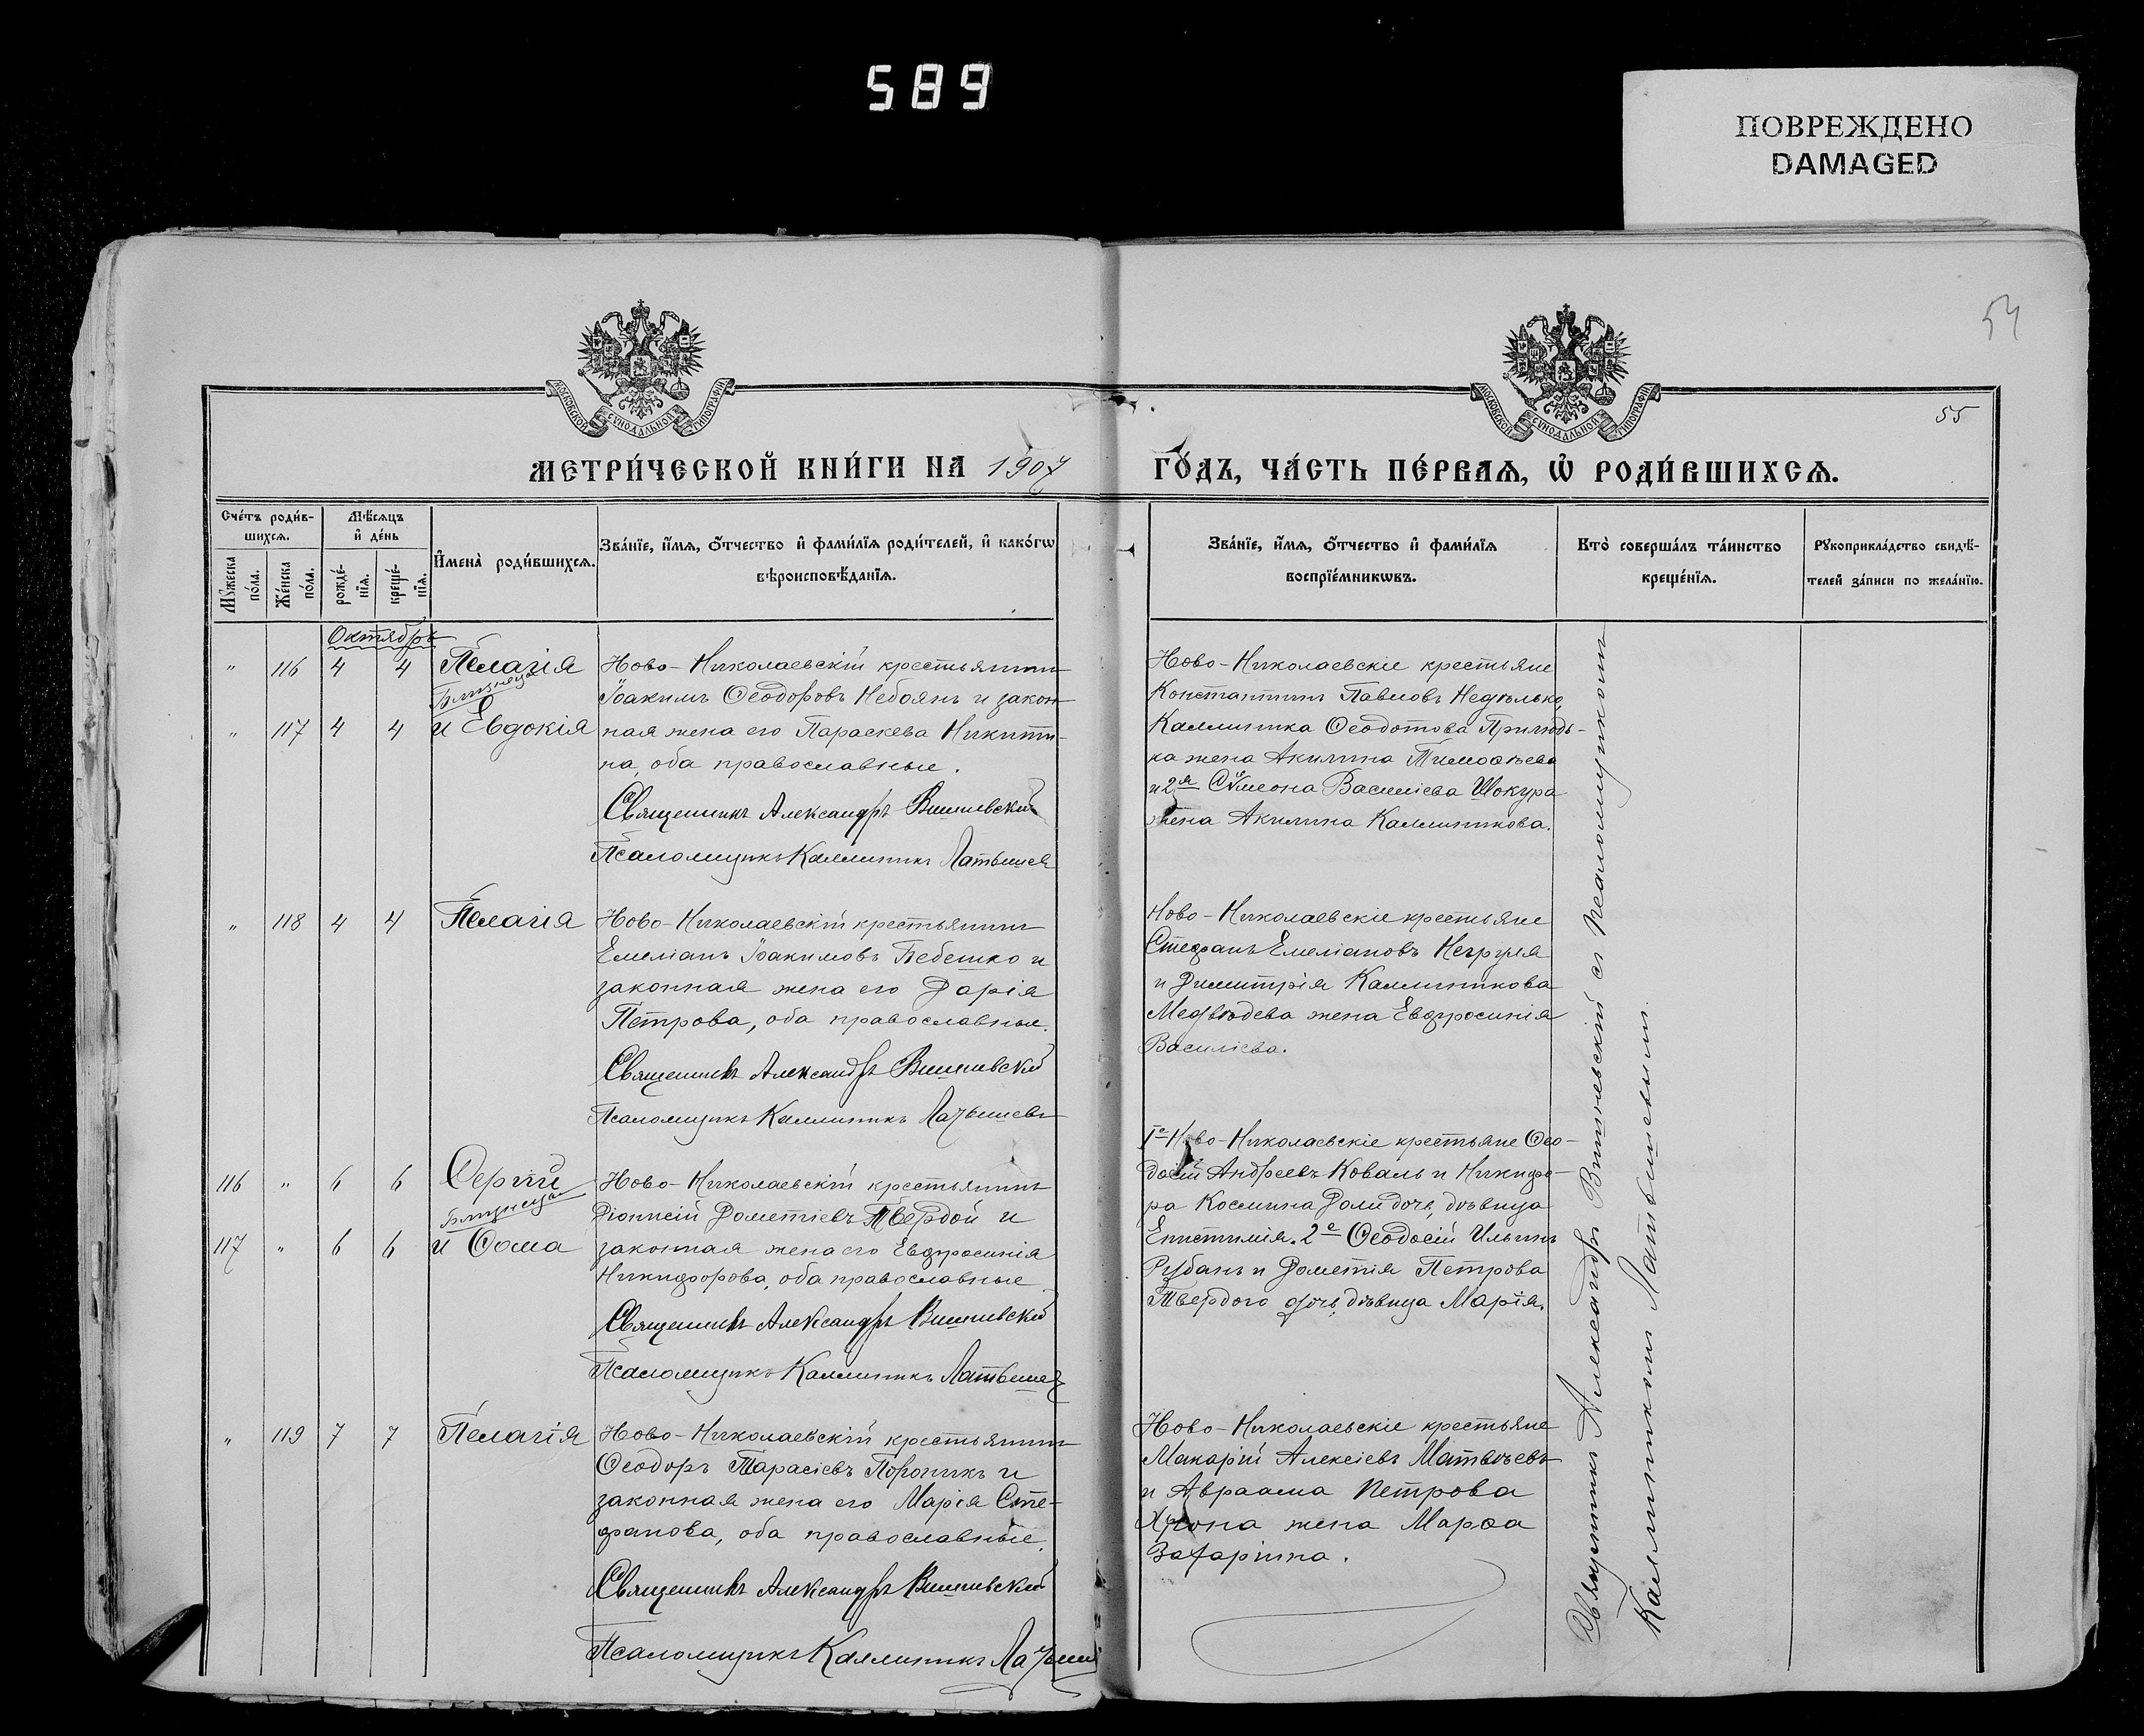 589
ПОВРЕЖДЕНО
DAMAGED
54
55
МОСКОВСКОЙ СѴНОДАЛЬНОЙ ТИПОГРАФІИ
МОСКОВСКОЙ СѴНОДАЛЬНОЙ ТИПОГРАФІИ
МЕТРИ́ЧЕСКОЙ КНИ́ГИ НА 1907
ГО́ДЪ, ЧА́СТЬ ПЕ́РВАѦ, Ѡ҆ РОДИ́ВШИХСѦ.
Сче́тъ роди́в-
шихсѧ.
Мꙋ́жеска по́ла.
Же́нска по́ла.
Мѣ́сѧцъ
и҆ де́нь
рожде́-
нїѧ.
креще́-
нїѧ.
И҆мена̀ роди́вшихсѧ.
Зва́нїе, и҆́мѧ, ѻ҆́тчество и҆ фами́лїѧ роди́телей, и҆ како́гѡ
вѣроисповѣ́данїѧ.
Зва́нїе, и҆́мѧ, ѻ҆́тчество и҆ фами́лїѧ
воспрїе́мникѡвъ.
Кто̀ соверша́лъ та́инство
креще́нїѧ.
Рꙋкоприкла́дство свидѣ́-
телей за́писи по жела́нїю.
Октябрь
" 116 4 4 Пелагія
Близнецы
" 117 4 4 и Евдокія
Ново-Николаевскій крестьянинъ
Іоакимъ Ѳеодоровъ Небоянъ и закон-
ная жена его Параскева Никити-
на, оба православные.
Священникъ Александръ Вишневскій
Псаломщикъ Каллиникъ Латышев
Ново-Николаевскіе крестьяне
Константинъ Павловъ Недѣлько,
Каллиника Ѳеодотова Приходь-
ка жена Акилина Тимоѳеева
и 2я Сѵмеона Василіева Шокура
жена Акилина Каллиникова.
" 118 4 4 Пелагія
Ново-Николаевскій крестьянинъ
Емеліанъ Іоакимовъ Бебешко и
законная жена его Дарія
Петрова, оба православные.
Священникъ Александръ Вишневскій
Псаломщикъ Каллиникъ Латышевъ
Ново-Николаевскіе крестьяне
Стефанъ Емеліановъ Негруля
и Димитрія Каллиникова
Медвѣдева жена Евфросинія
Василіева.
116 " 6 6 Сергій
Близнецы
117 " 6 6 и Ѳома
Ново-Николаевскій крестьянинъ
Діонисій Дометіевъ Твердой и
законная жена его Евфросинія
Никифорова, оба православные
Священникъ Александръ Вишневскій
Псаломщикъ Каллиникъ Латышев
1е Ново-Николаевскіе крестьяне Ѳео-
досій Андреевъ Коваль и Никифо-
ра Космина Доли дочь, дѣвица
Епистимія. 2е Ѳеодосій Ильинъ
Рубанъ и Дометія Петрова
Твердого дочь, дѣвица Марія.
" 119 7 7 Пелагія
Ново-Николаевскій крестьянинъ
Ѳеодоръ Тарасіевъ Пороникъ и
законная жена его Марія Сте-
фанова, оба православные.
Священникъ Александръ Вишневскій
Псаломщикъ Каллиникъ Латыш
Ново-Николаевскіе крестьяне
Макарій Алексіевъ Матвѣевъ
и Авраама Петрова
жена Марѳа
Захаріина.
Священникъ Александръ Вишневскій съ псаломщикомъ
Каллиникомъ Латышевымъ.